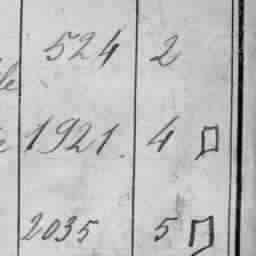 524 2
1921. 4
2035 5